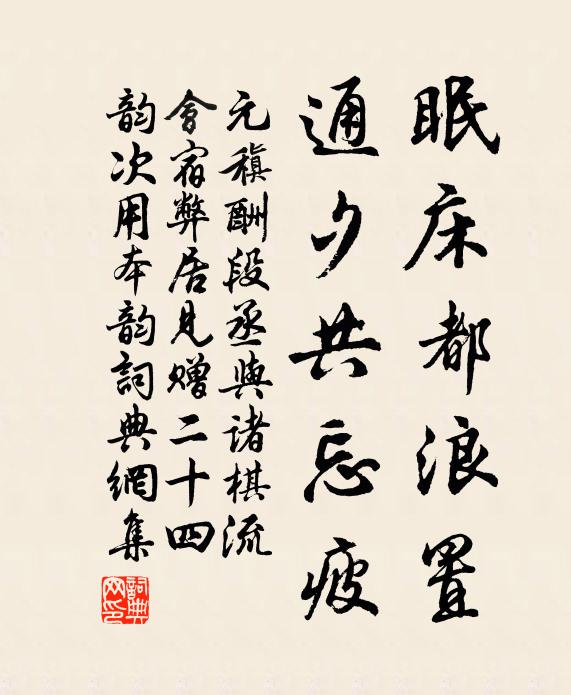 眠床都浪置
通夕共忘疲
元稹酬段丞與諸棋流
會宿弊居見贈二十四
韵次用本韵詞典網集
詞典網印